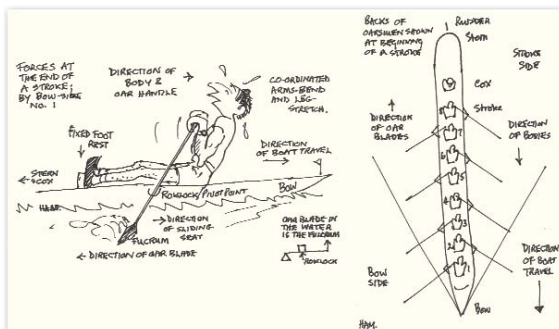 FORCES AT
THE END OF
A STROKE;
BY BOW-SIDE
NO. 1
DIRECTION OF
BODY &
OAR HANDLE
CO-ORDINATED
ARMS-BEND
AND LEG-
STRETCH.
FIXED FOOT
REST
DIRECTION
OF BOAT TRAVEL
STERN
& COX
ROWLOCK/PIVOT POINT
BOW
HAM.
DIRECTION
OF SLIDING
SEAT
FULCRUM
DIRECTION OF OAR BLADE
OAR BLADE IN
THE WATER
IS THE FULCRUM
ROWLOCK
BACKS OF
OARSMEN SHOWN
AT BEGINNING
OF A STROKE
RUDDER
STERN
STROKE
SIDE
COX
STROKE
8
7
6
5
4
3
2
1
DIRECTION
OF OAR
BLADES
DIRECTION
OF BODIES
BOW
SIDE
DIRECTION
OF BOAT
TRAVEL
BOW
HAM.